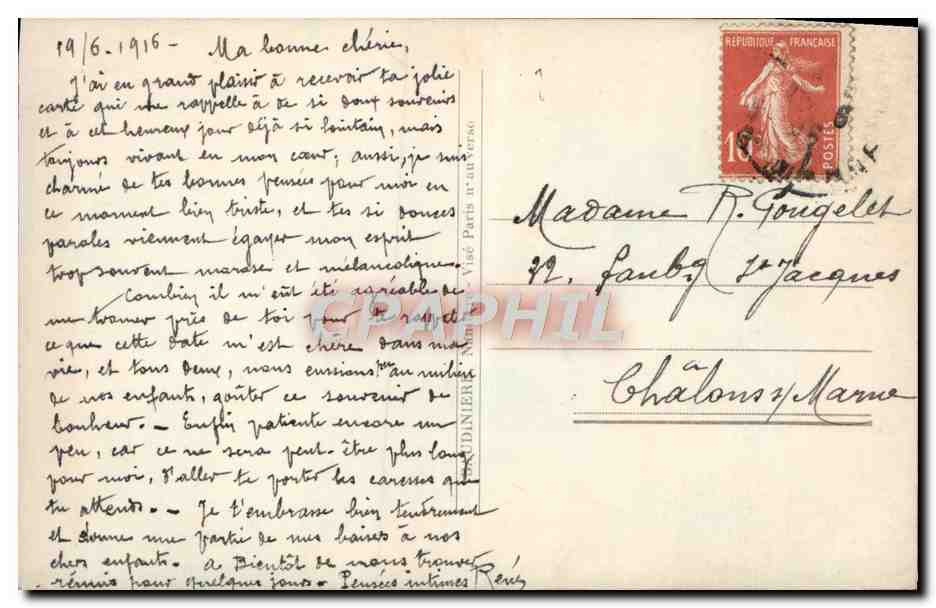 19/6-1916- Ma bonne chérie,
J'ai eu grand plaisir à recevoir ta jolie
carte qui me rappelle à de si doux souvenirs
et à cet heureux jour déjà si lointain, mais
toujours vivant en mon cœur; aussi, je suis
charmé de tes bonnes pensées pour moi en
ce moment bien triste, et tes si douces
paroles viennent égayer mon esprit
trop souvent et mélancolique.
Combien il m'eût été agréable de
me trouver près de toi pour te rappeler
ce que cette date m'est chère dans ma
vie, et tous deux, nous eussions pu au milieu
de nos enfants, goûter ce souvenir de
bonheur. - Enfin patiente encore un
peu, car ce ne sera peut-être plus long
pour moi, d'aller te porter les caresses que
tu attends. - Je t'embrasse bien tendrement
et donne une partie de mes baisers à nos
chers enfants. à Bientôt de nous trouver
réunis pour quelques jours. Pensées intimes René
BAUDINIERE Nanterre - Visé Paris n° au verso
CPAPHIL
REPUBLIQUE FRANÇAISE
10
POSTES
Madame R. Gougelet
22, faubg St Jacques
Châlons s/ Marne